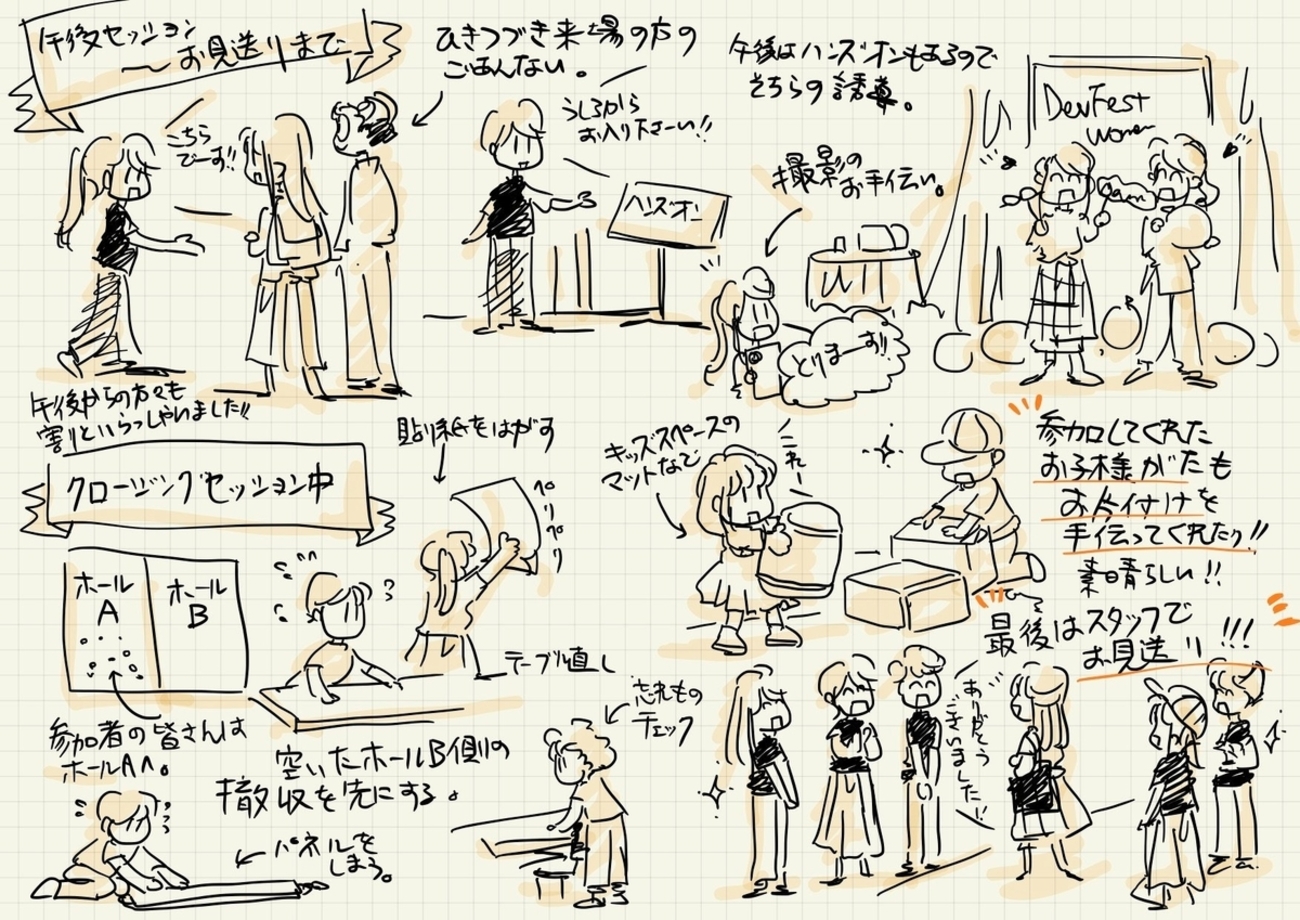 午後セッション
〜お見送りまで
ひきつづき来場の方の
ごあんない。
こちら
でーす!!
うしろから
お入り下さーい!!
ハンズオン
午後はハンズオンもあるので
そちらの誘導。
撮影の
お手伝い。
DevFest
Women
とりまーす!!
午後からの方々も
割りといらっしゃいました!!
クロージングセッション中
ホール
A
ホール
B
参加者の皆さんは
ホールAへ。
貼り紙をはがす
ペリペリ
テーブル直し
空いたホールB側の
撤収を先にする。
パネルを
しまう。
忘れもの
チェック
キッズスペースの
マットなど
これー
参加してくれた
お子様がたも
お片付けを
手伝ってくれたり!!
素晴らしい!!
最後はスタッフで
お見送り!!!
ありがとう
ございました!!